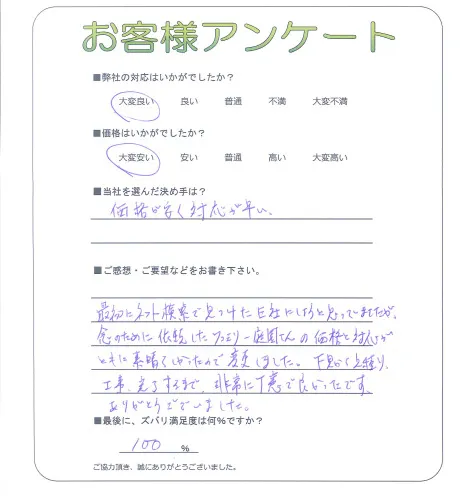 お客様アンケート
■弊社の対応はいかがでしたか？
大変良い 良い 普通 不満 大変不満
■価格はいかがでしたか？
大変安い 安い 普通 高い 大変高い
■当社を選んだ決め手は？
価格が安く対応が早い。
■ご感想・ご要望などをお書き下さい。
最初にネット検索で見つけたE社にしようと思っていましたが、
念のために依頼した ファミリー庭園さんの価格と対応が
ともに素晴しかったので変更しました。下見から見積り、
工事、完了するまで、非常に丁寧で良かったです。
ありがとうございました。
■最後に、ズバリ満足度は何％ですか？
100 ％
ご協力頂き、誠にありがとうございました。